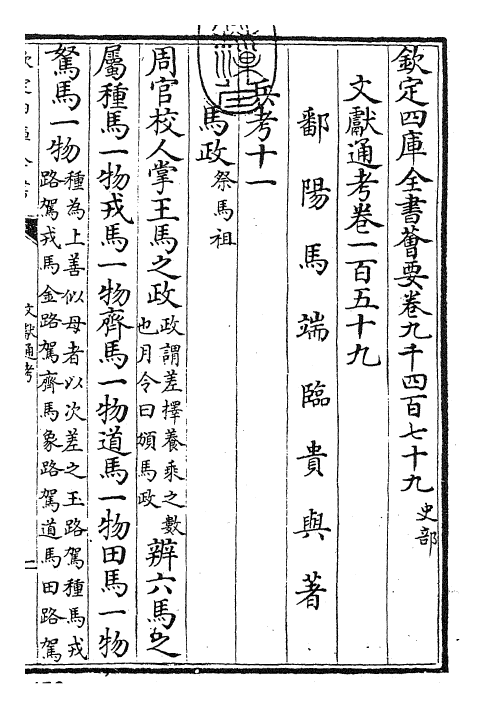 欽定四庫全書薈要卷九千四百七十九 史部
文獻通考卷一百五十九
鄱陽馬端臨貴與著
兵考十一
馬政 祭馬祖
周官校人掌王馬之政 政謂差擇養乘之數也月令曰頒馬政 辨六馬之
屬種馬一物戎馬一物齊馬一物道馬一物田馬一物
駑馬一物 種為上善似母者以次差之王路駕種馬戎路駕戎馬金路駕齊馬象路駕道馬田路駕
文獻通考